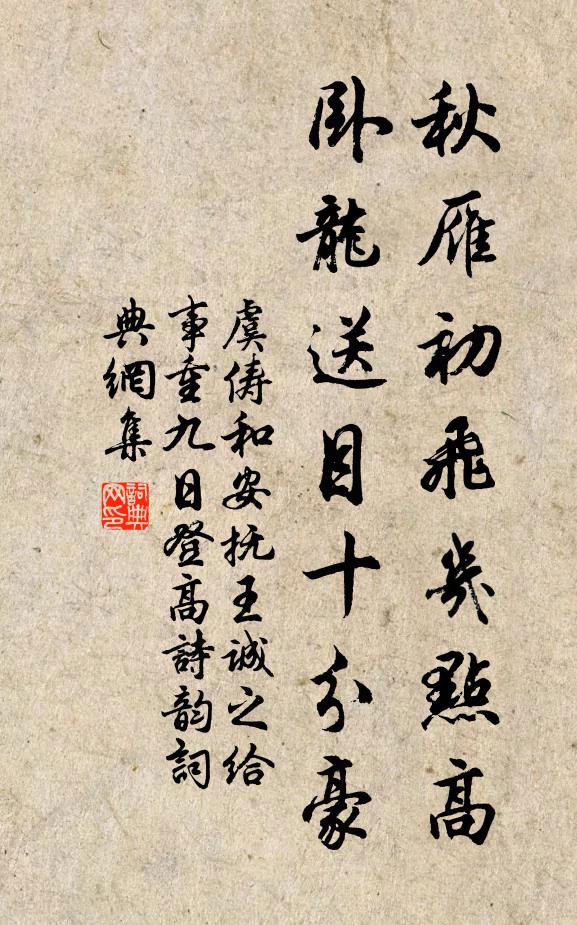 秋雁初飛幾點高
臥龍送目十分豪
虞儔和安抚王誠之給
事重九日登高詩韵詞
典網集
詞典
网印